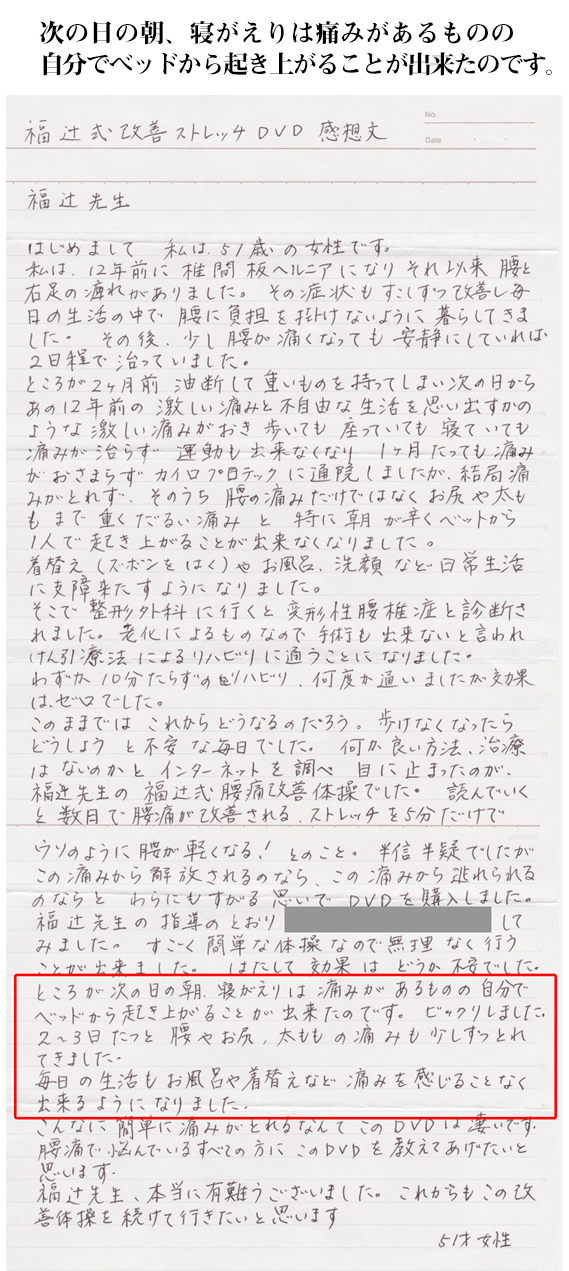 次の日の朝、寝がえりは痛みがあるものの
自分でベッドから起き上がることが出来たのです。
No.
Date
福辻式改善ストレッチDVD 感想文
福辻先生
はじめまして 私は、51歳の女性です。
私は、12年前に椎間板ヘルニアになりそれ以来腰と
右足の痺れがありました。その症状もすこしずつ改善し毎
日の生活の中で腰に負担を掛けないように暮らしてきま
した。その後、少し腰が痛くなっても安静にしていれば
2日程で治っていました。
ところが2ヶ月前 油断して重いものを持ってしまい次の日から
あの12年前の激しい痛みと不自由な生活を思い出すかの
ような激しい痛みがおき歩いても座っていても寝ていても
痛みが治らず 運動も出来なくなり 1ヶ月たっても痛み
がおさまらずカイロプロテックに通院しましたが、結局痛
みがとれず、そのうち腰の痛みだけではなくお尻や太も
もまで重くだるい痛みと 特に朝が辛くベットから
1人で起き上がることが出来なくなりました。
着替え(ズボンをはく)やお風呂、洗顔など日常生活
に支障来たすようになりました。
そこで整形外科に行くと変形性腰椎症と診断さ
れました。老化によるものなので手術も出来ないと言われ
けん引療法によるリハビリに通うことになりました。
わずか10分たらずのリハビリ、何度か通いましたが効果
は、ゼロでした。
このままでは これからどうなるのだろう。歩けなくなったら
どうしよう と不安な毎日でした。何か良い方法、治療
はないのかと インターネットを調べ 目に止まったのが、
福辻先生の福辻式腰痛改善体操でした。読んでいく
と数日で腰痛が改善される、ストレッチを5分だけで
KOKUYO
ウソのように腰が軽くなる!とのこと。半信半疑でしたが
この痛みから解放されるのなら、この痛みから逃れられる
のならと わらにもすがる思いでDVDを購入しました。
福辻先生の指導のとおり して
みました。すごく簡単な体操なので無理なく行う
ことが出来ました。はたして効果はどうか不安でした。
ところが次の日の朝、寝がえりは痛みがあるものの自分で
ベッドから起き上がることが出来たのです。ビックリしました。
2~3日たつと腰やお尻、太ももの痛みも少しずつとれ
てきました。
毎日の生活もお風呂や着替えなど痛みを感じることなく
出来るようになりました。
こんなに簡単に痛みがとれるなんてこのDVDは凄いです。
腰痛で悩んでいるすべての方にこのDVDを教えてあげたいと
思います。
福辻先生、本当に有難うございました。これからもこの改
善体操を続けて行きたいと思います
51才女性